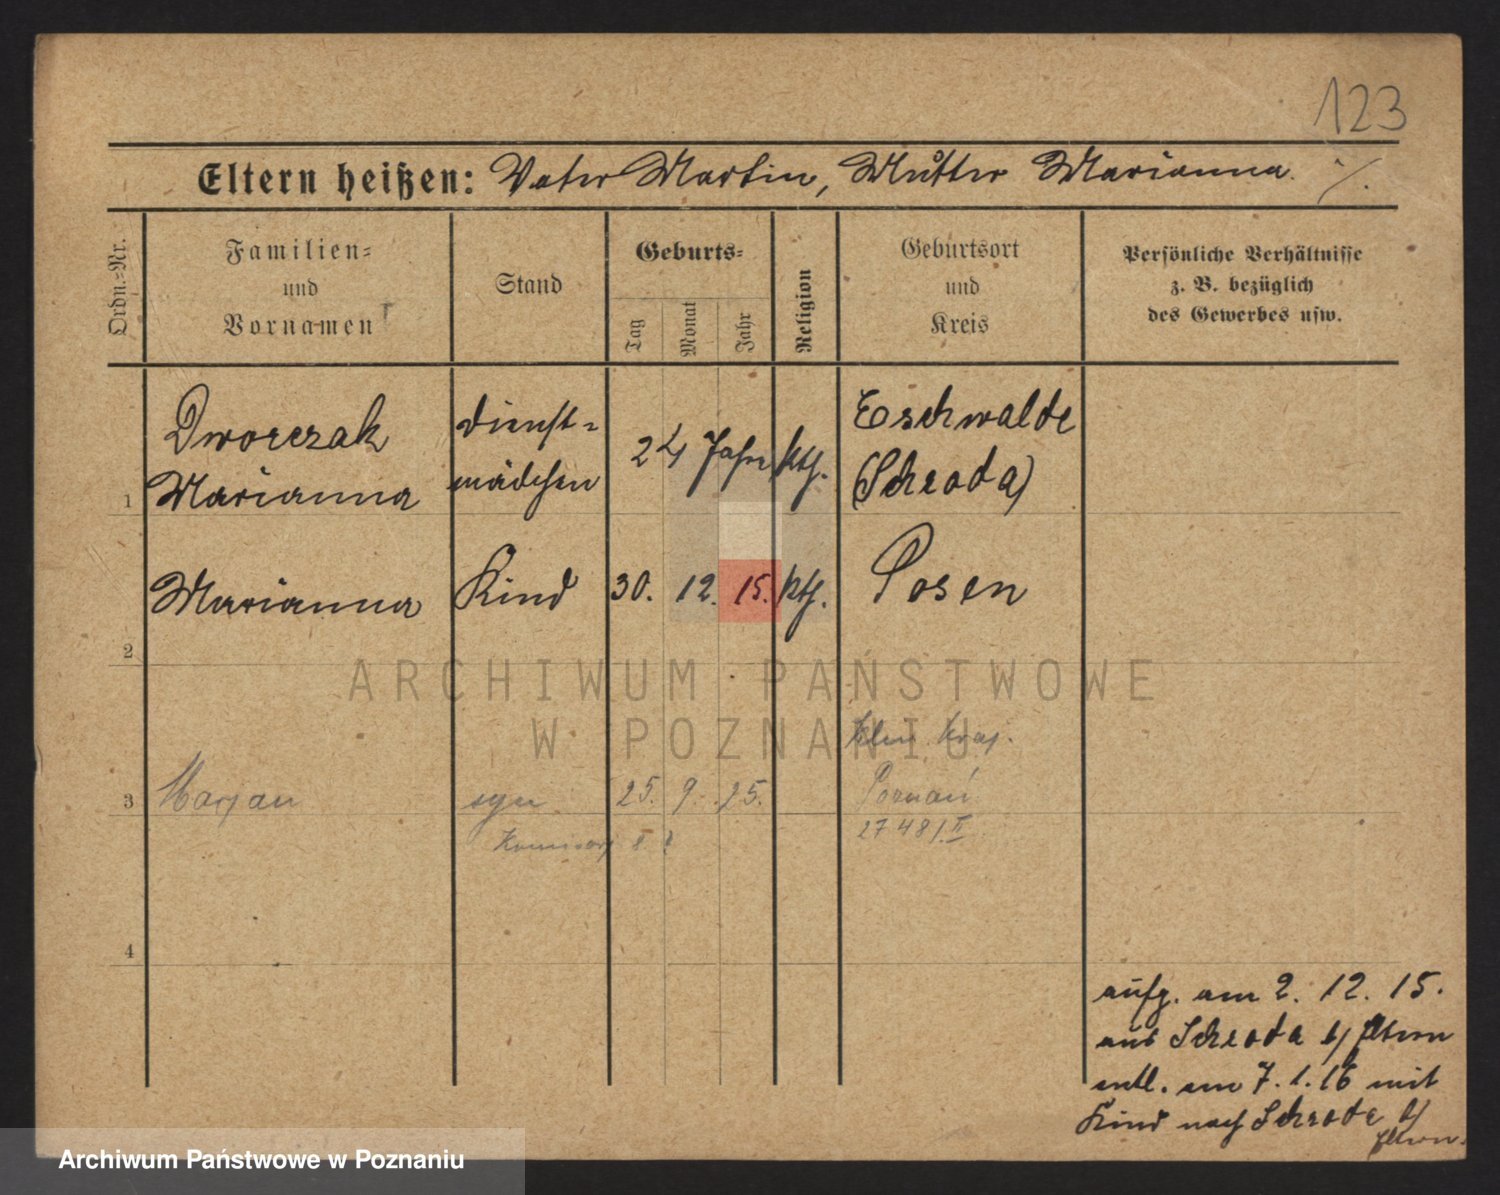 123
Eltern heißen: Vater Martin, Mutter Marianna ./.
Ordn.=Nr.
Familien=
und
Vornamen
Stand
Geburts=
Tag
Monat
Jahr
Religion
Geburtsort
und
Kreis
Persönliche Verhältnisse
z. B. bezüglich
des Gewerbes usw.
Dworczak
Marianna
Dienst=
mädchen
24 Jahre
kth.
Eschwalde
(Schroda)
1
Marianna
Kind
30. 12. 15.
kth.
Posen
2
ARCHIWUM PAŃSTWOWE
W POZNANIU
3
Marjan
syn
25. 9. 25.
Poznań
27481. II
4
aufg. am 2. 12. 15.
aus Schroda b/ Eltern
entl. am 7. 1. 16 mit
Kind nach Schroda b/
Eltern.
Archiwum Państwowe w Poznaniu